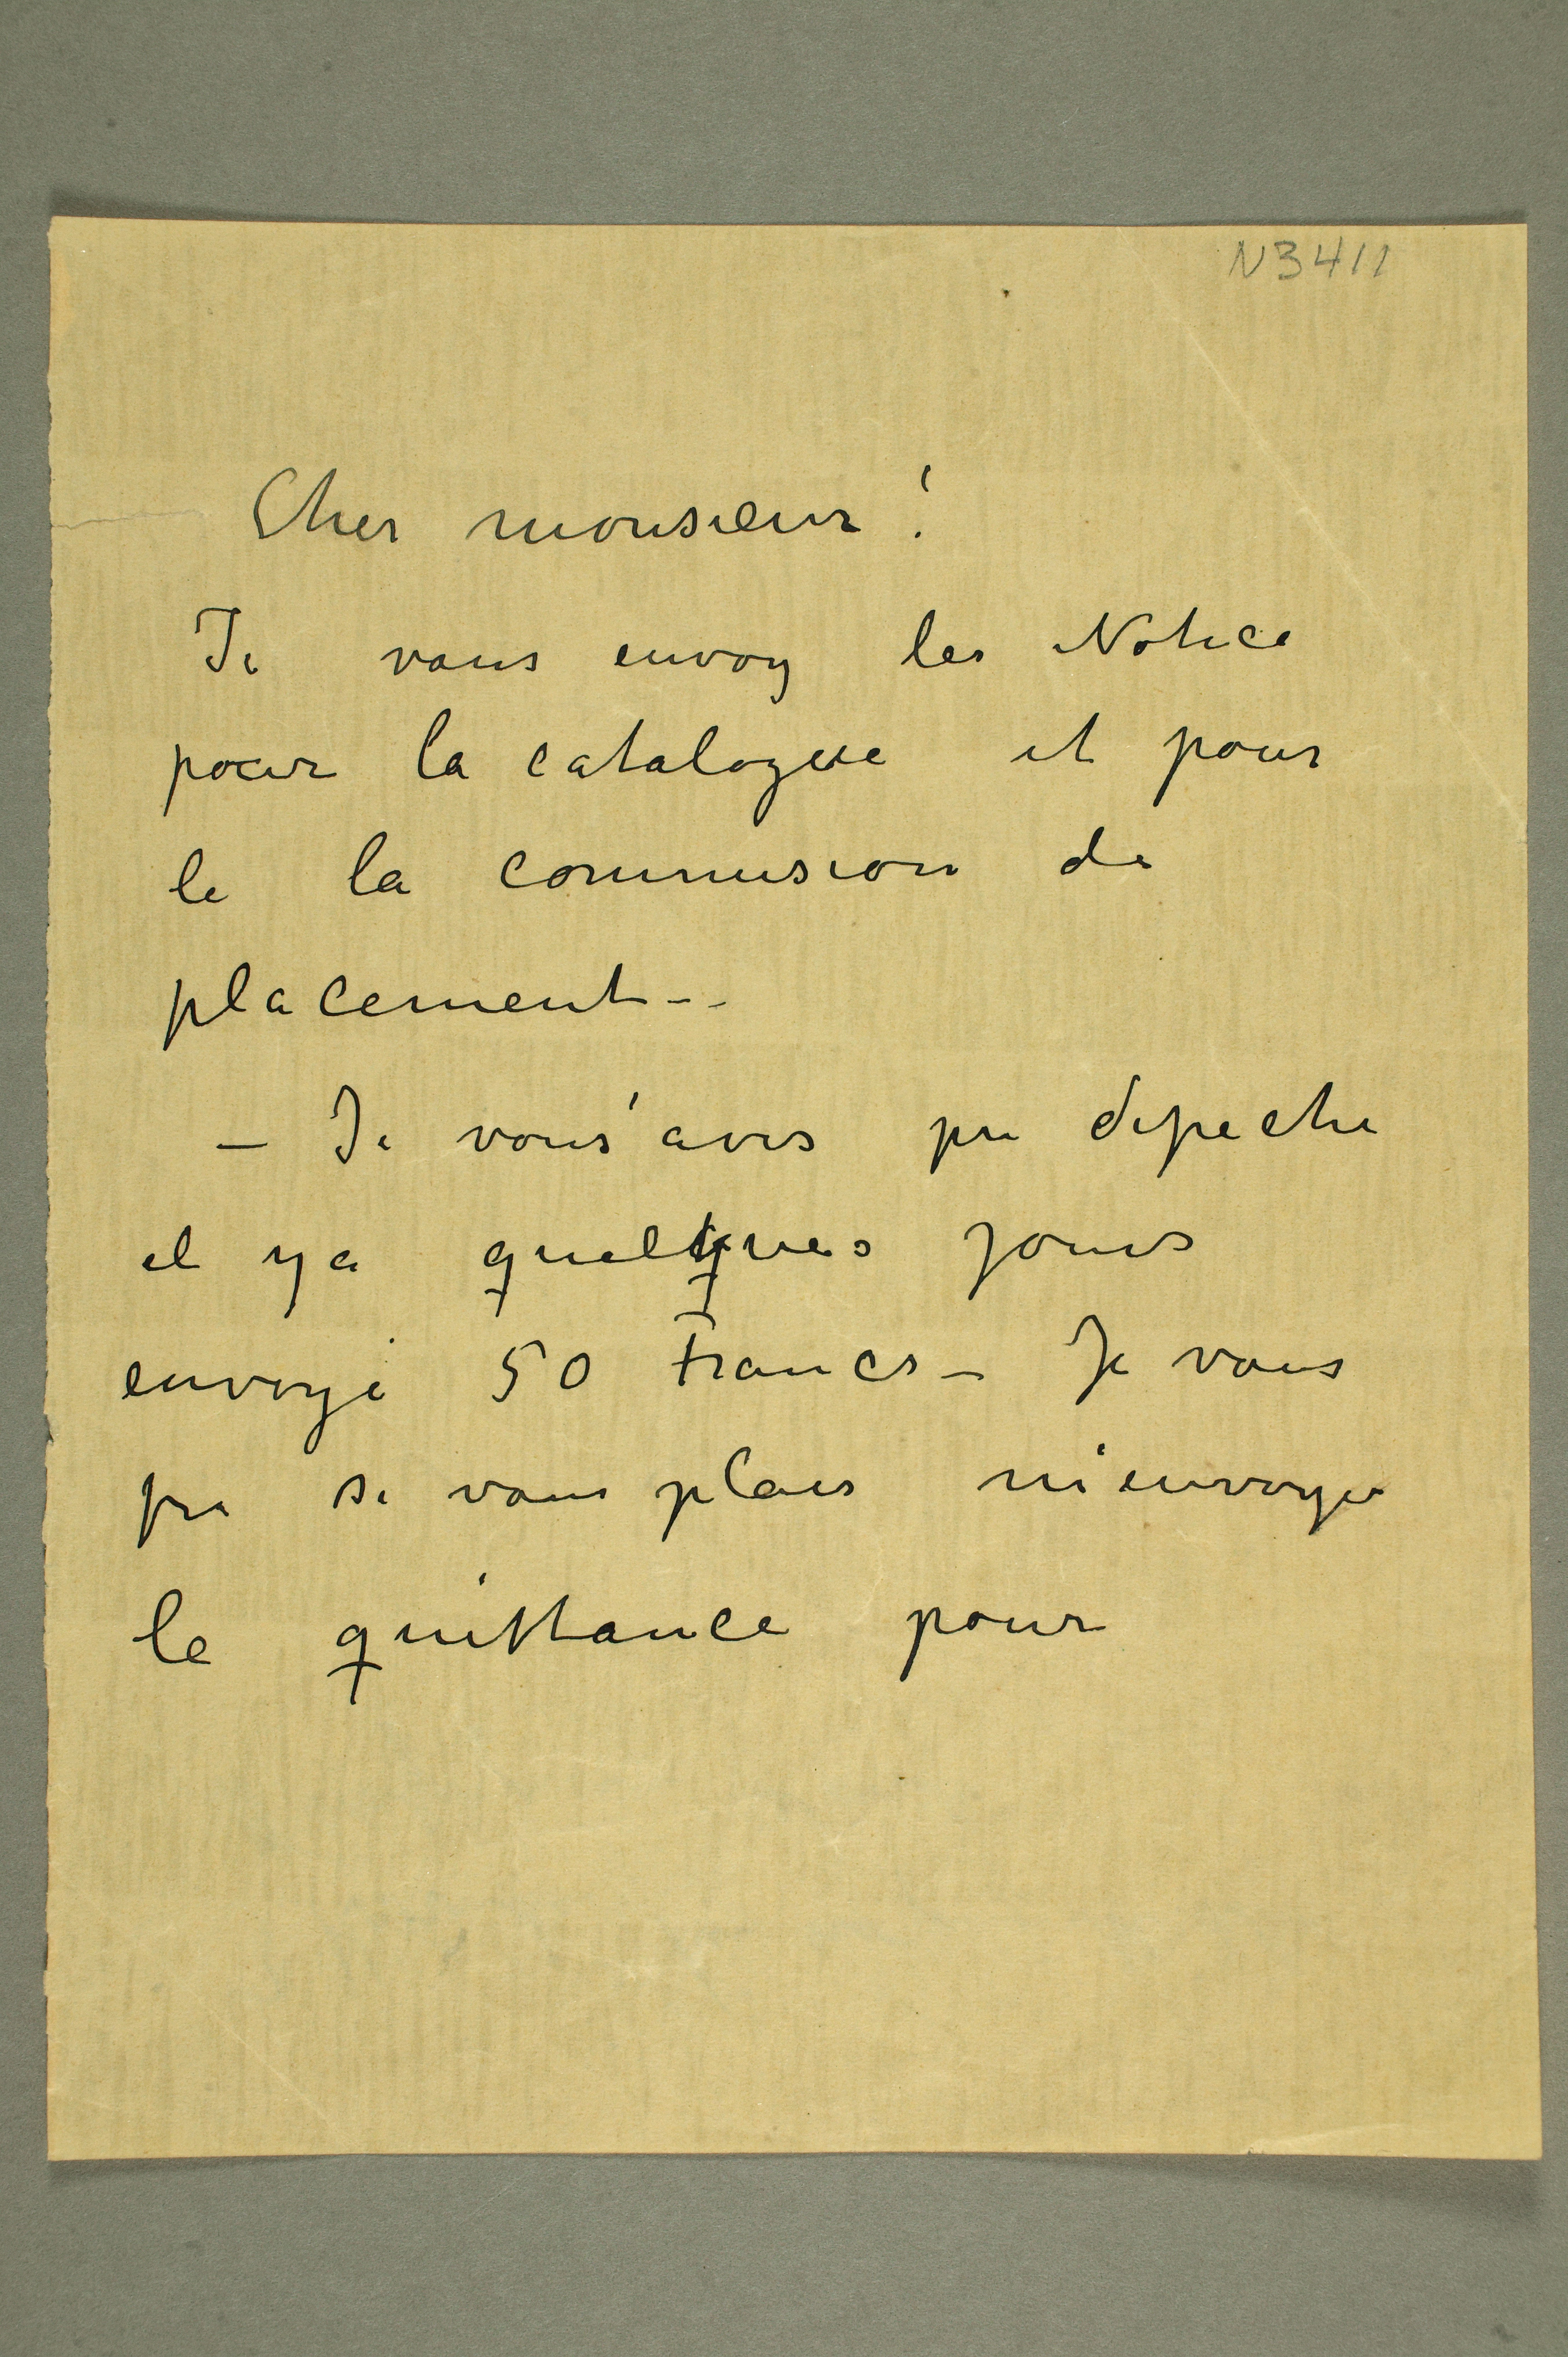 N 3411
Cher monsieur!
Je vous envoy les Notice
pour la catalogue et pour
le la commision de
placement--
– Je vous'avis pre depeche
il ya quelques jours
envoye 50 Francs – Je vous
pre si vous plais m'envoye
le quittance pour